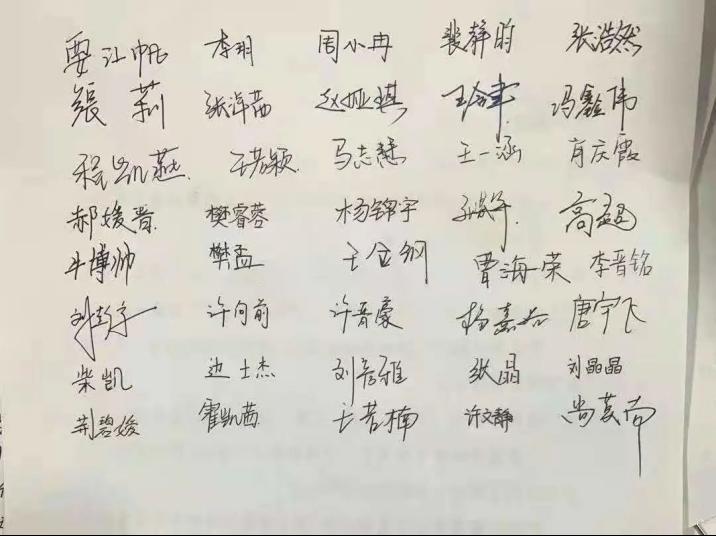 李玥 周小冉 裴静 张浩然
张莉 张泽茜 赵娅琪 冯鑫伟
程凯燕 王若颖 马志慧 王一涵 肖庆霞
郝媛晋 樊睿蓉 杨锦宇 高超
牛博帅 樊孟 王金钢 贾海荣 李晋铭
刘彭宇 许向前 许晋豪 杨嘉 唐宇飞
柴凯 边士杰 刘彦雅 张晶 刘晶晶
荆碧媛 霍凯茜 王若楠 许文静 尚